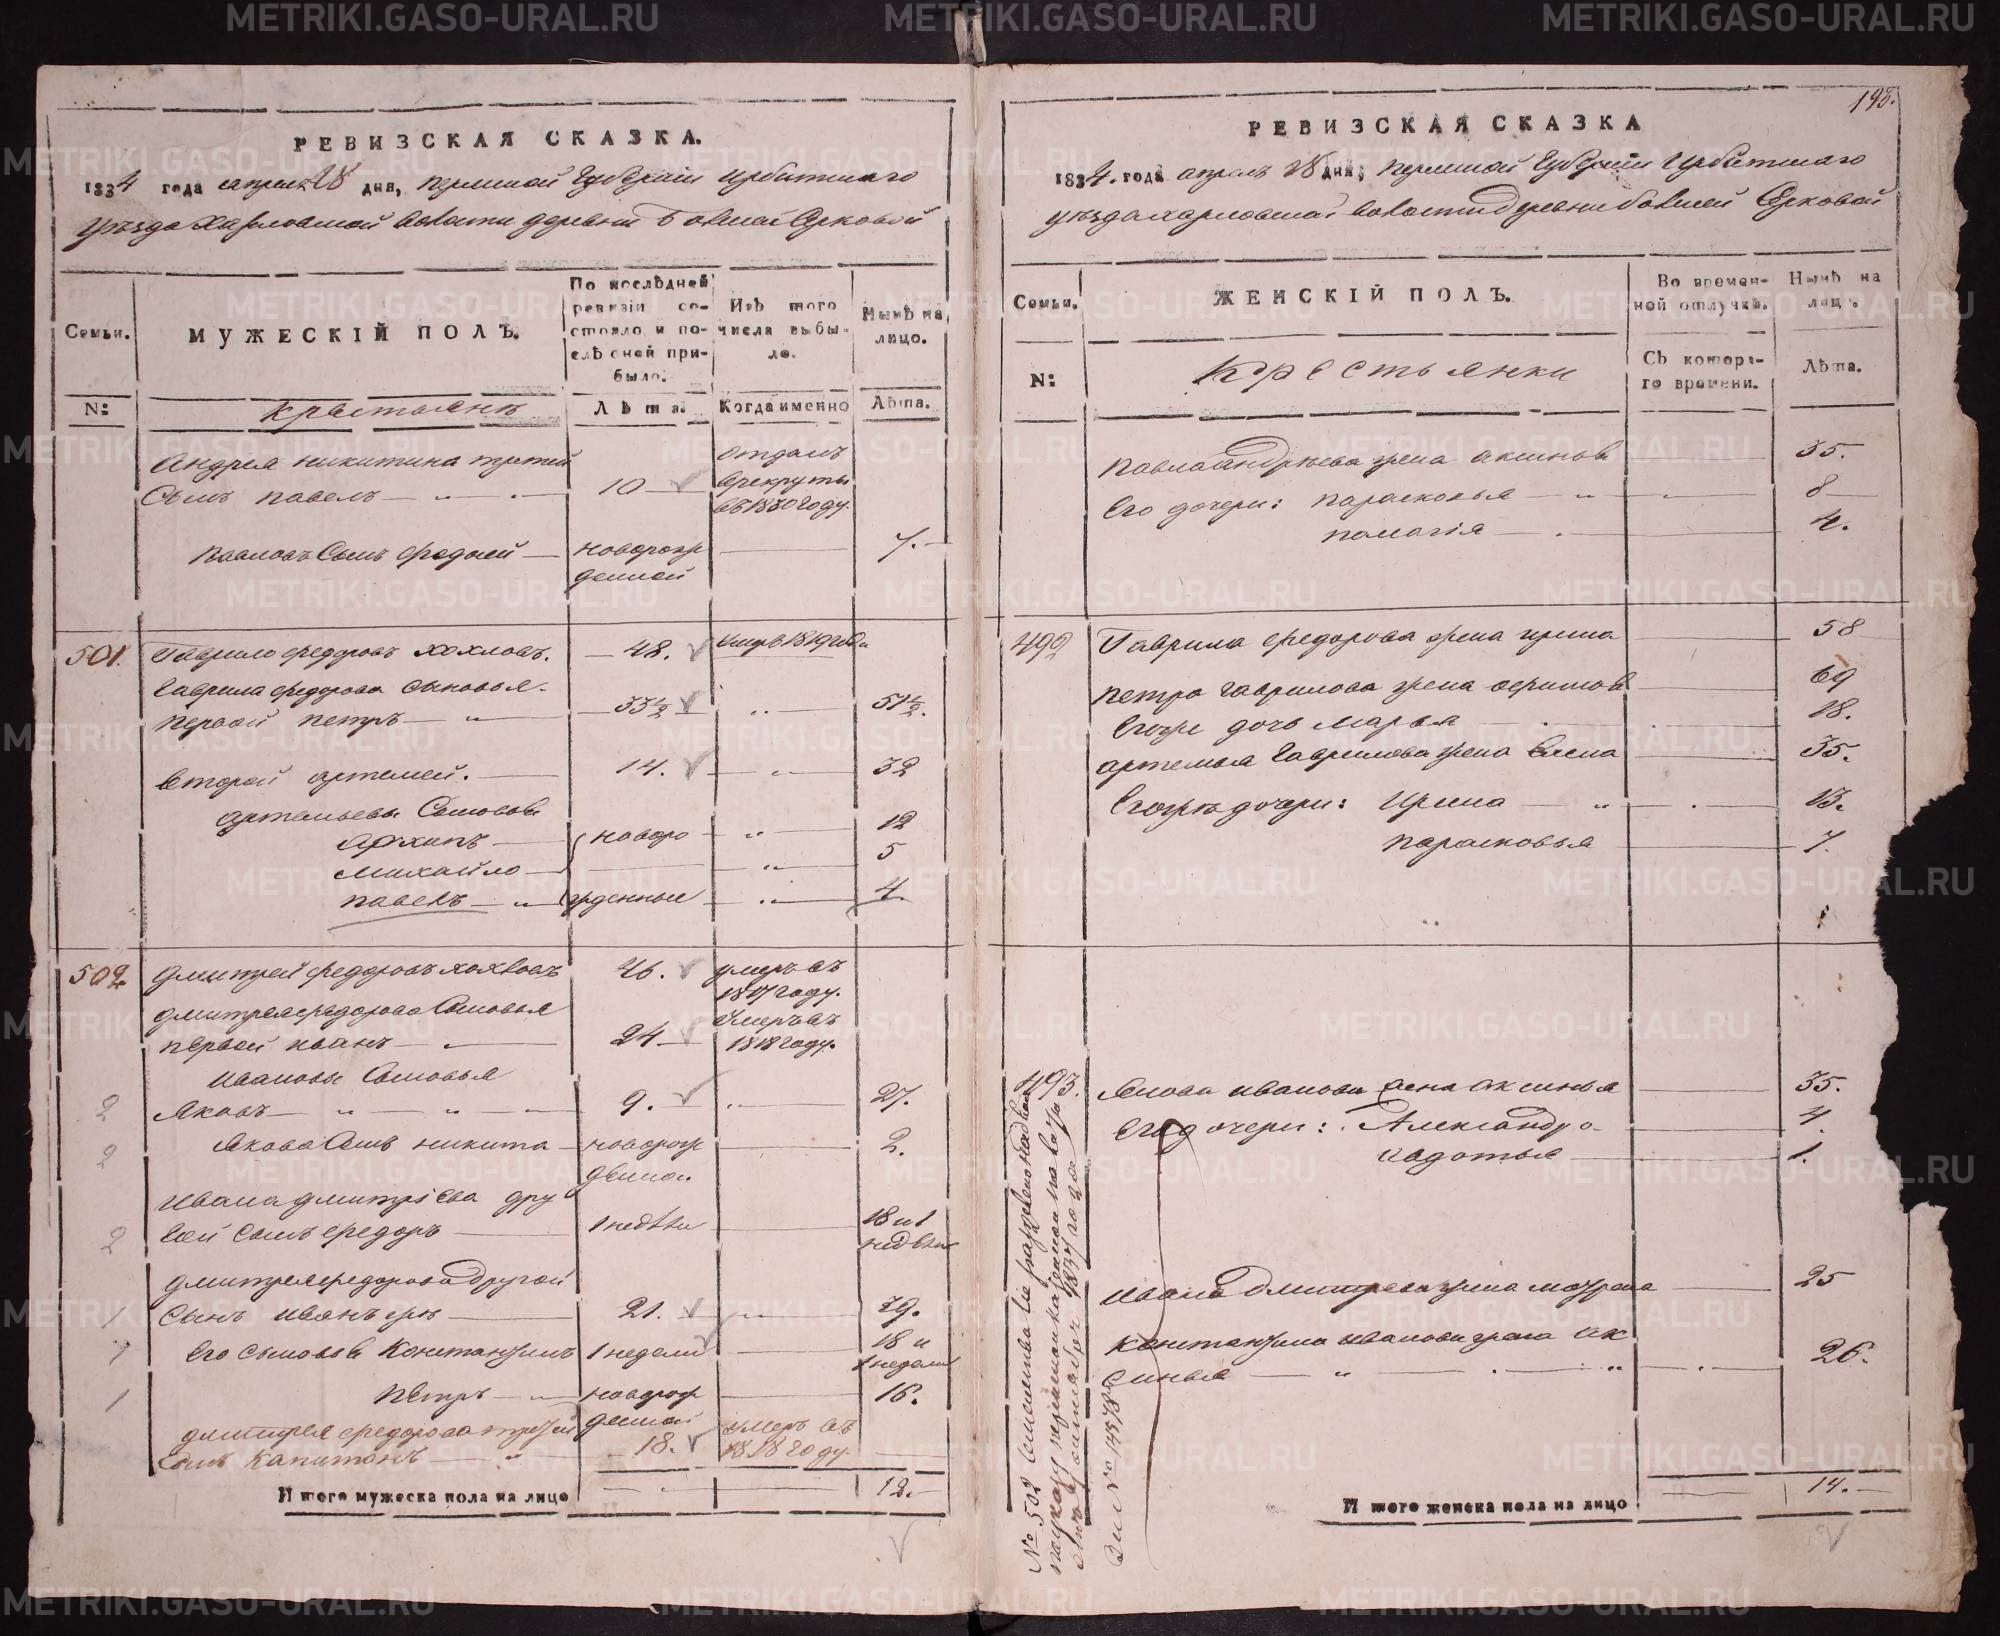 РЕВИЗСКАЯ СКАЗКА.
1834 года апреля 18 дня, пермской Губернiи ирбитскаго
уѣзда харловской волости деревни Боевой Ерковой
Семьи.
МУЖЕСКІЙ ПОЛЪ.
По послѣдней ревизіи состояло, и послѣ оной прибыло.
Изъ того числа выбыло.
Нынѣ на лицо.
№
крестьянъ
Лѣта.
Когда именно
Лѣта.
Андрея никитина третей
Сынъ павелъ 10
отданъ
в рекруты
въ 1830 году.
павловъ Сынъ Федосей новорож
денной 7.
501. Гаврило Федоровъ хохловъ. 48. умеръ 1819 года
Гаврила Федорова Сыновья.
первой петръ 35 1/2 51 1/2.
второй артемей. 14. 32
артемьевы Сыновья
Архипъ новоро 12
Михайло 5
павелъ жденные 4.
502 дмитрей федоровъ хохловъ 46. умеръ въ
1817 году.
дмитрея федорова Сыновья
первой иванъ 24 Умеръ въ
1818 году.
Ивановы Сыновья
2 Яковъ 9. 27.
2 Якова Сынъ никита новорож 2.
денной
Ивана дмитріева дру
2 гой Сынъ Федоръ 1 недѣли 18 и 1
недѣли
дмитрея федорова другой
1 Сынъ иванъ 21. 39.
1 Его Сыновья Констанtинъ 1 недели 18 и
1 недели
1 Петръ новорож 16.
денной
дмитрея федорова третей
Сынъ Капитонъ 18. умеръ въ
1818 году.
Итого мужеска пола на лицо 12.
193.
РЕВИЗСКАЯ СКАЗКА
1834. года апреля 18 дня, пермской Губернiи Ирбитскаго
уѣзда харловской волости деревни боевой Ерковой
Семьи.
ЖЕНСКІЙ ПОЛЪ.
Во временной отлучкѣ.
Нынѣ на лицо.
№
Крестьянки
Съ которого времени.
Лѣта.
павла андрѣева жена аксинья 35.
Его дочери: парасковья 8
палагія 4.
492 Гаврила федорова жена ирина 58
петра гаврилова жена 69
Егоже дочь Марья 18.
артемья гаврилова жена Елена 35.
Егожъ дочери: Ирина 13.
парасковья 7.
493. Якова иванова жена Аксинья 35.
Его дочери: Александра 4.
авдотья 1.
Ивана Дмитрева жена матрена 25
констанtина иванова жена ак
синья 26.
Итого женска пола на лицо 14.
METRIKI.GASO-URAL.RU